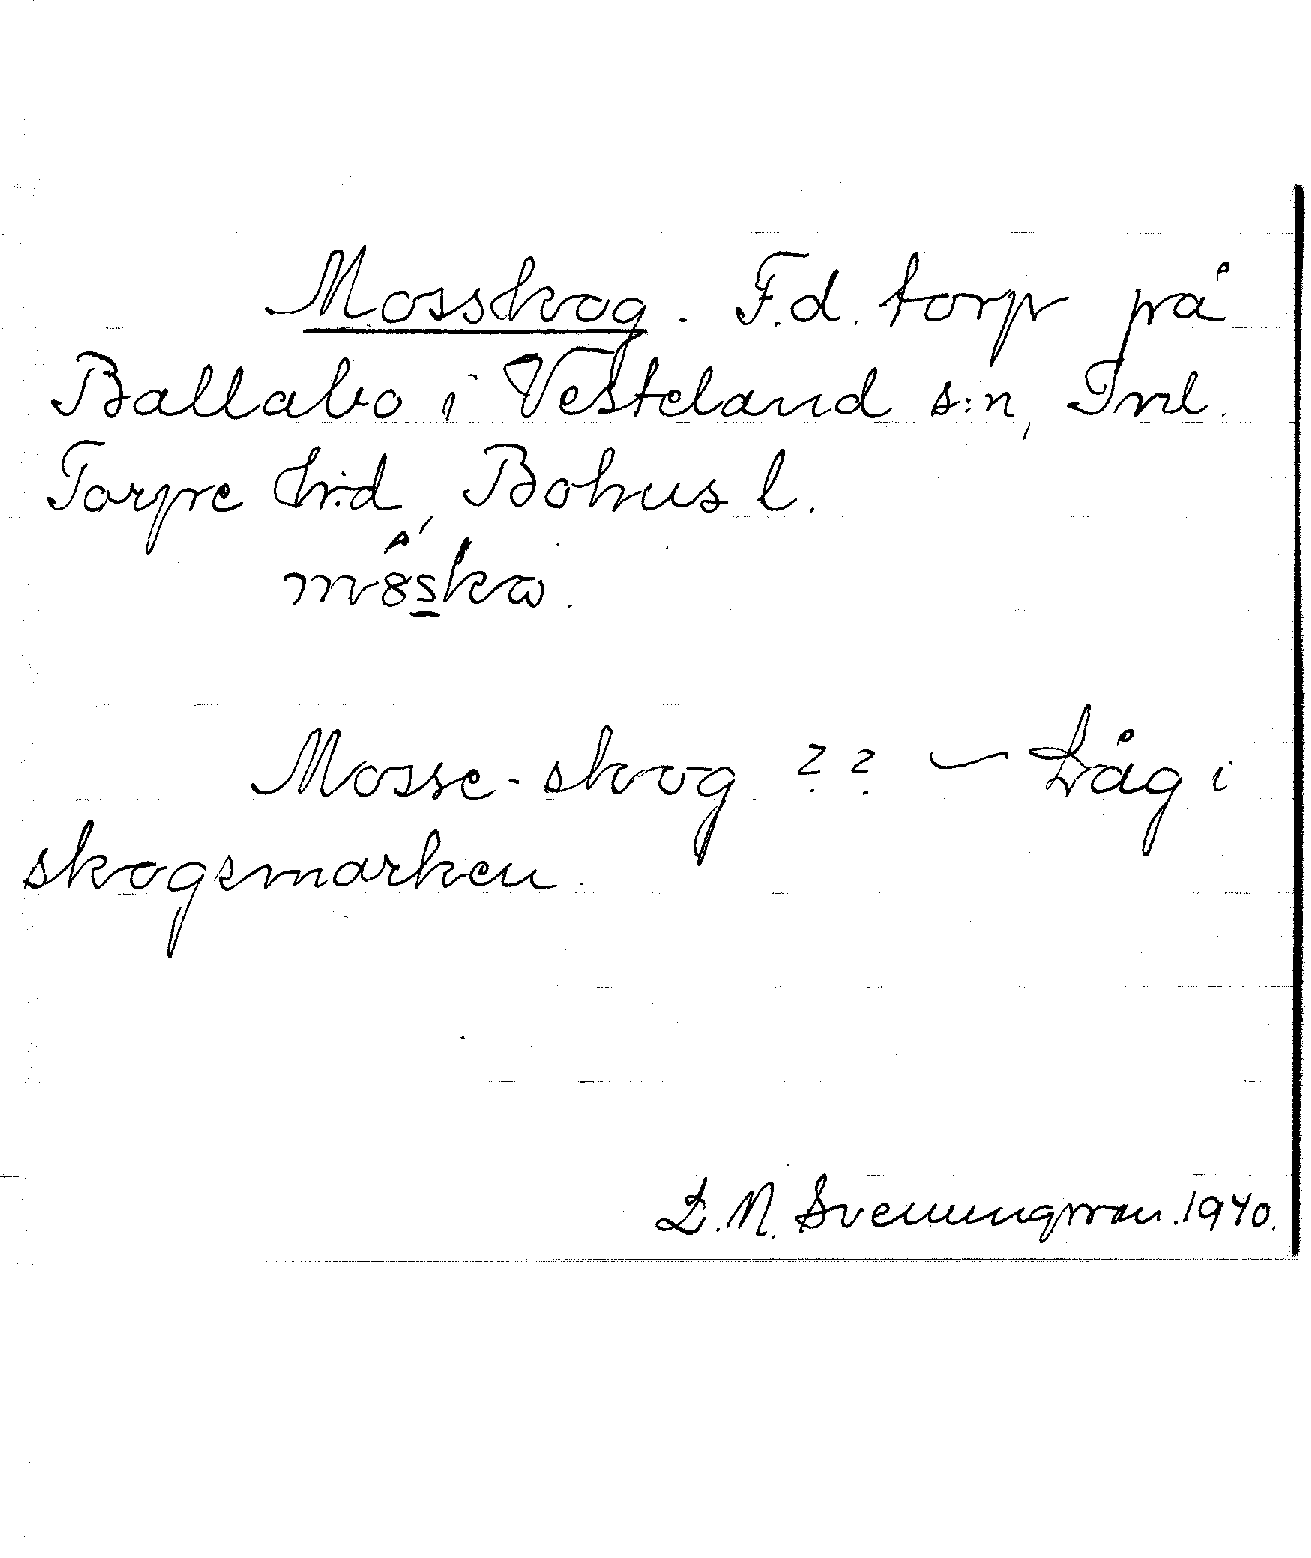 Mosskog. F.d. torp på
Ballabo i Vesteland s:n, Inl.
Torpe h:d, Bohusl.
Mosse-skog ?? — Låg i
skogsmarken.
D. N. Svenungsson. 1940.